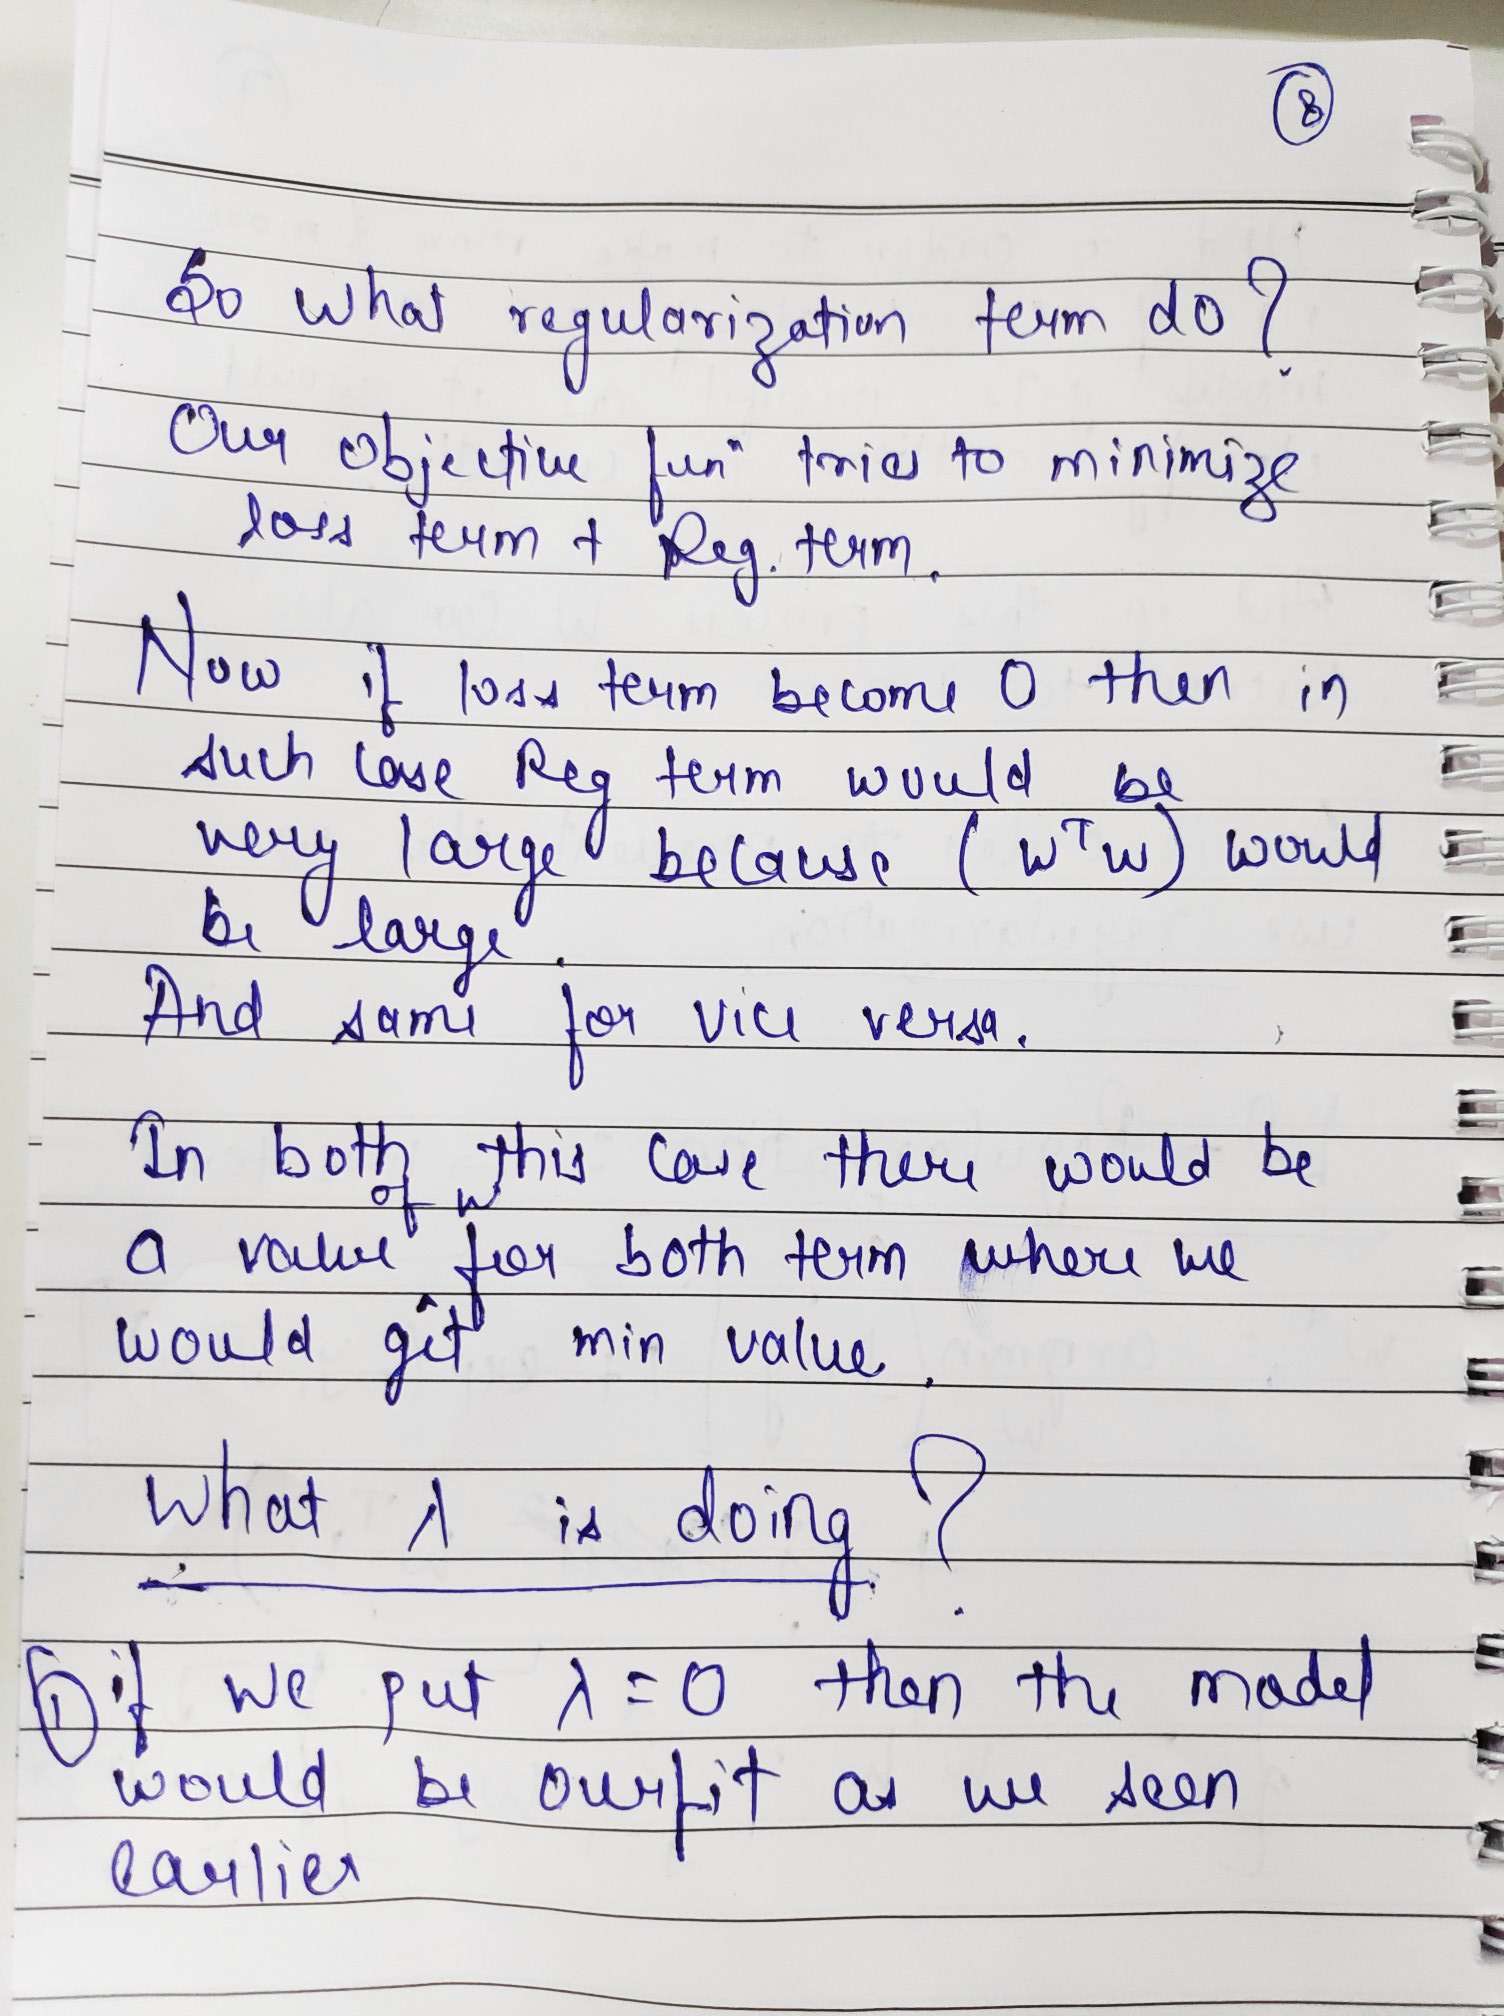 8
So what regularization term do?
Our objective funⁿ tries to minimize
loss term + Reg. term.
Now if loss term become 0 then in
such case Reg term would be
very large because (wᵀw) would
be large.
And same for vice versa.
In both this case there would be
of w
a value for both term where we
would get min value.
What λ is doing?
① if we put λ = 0 then the model
would be overfit as we seen
earlier